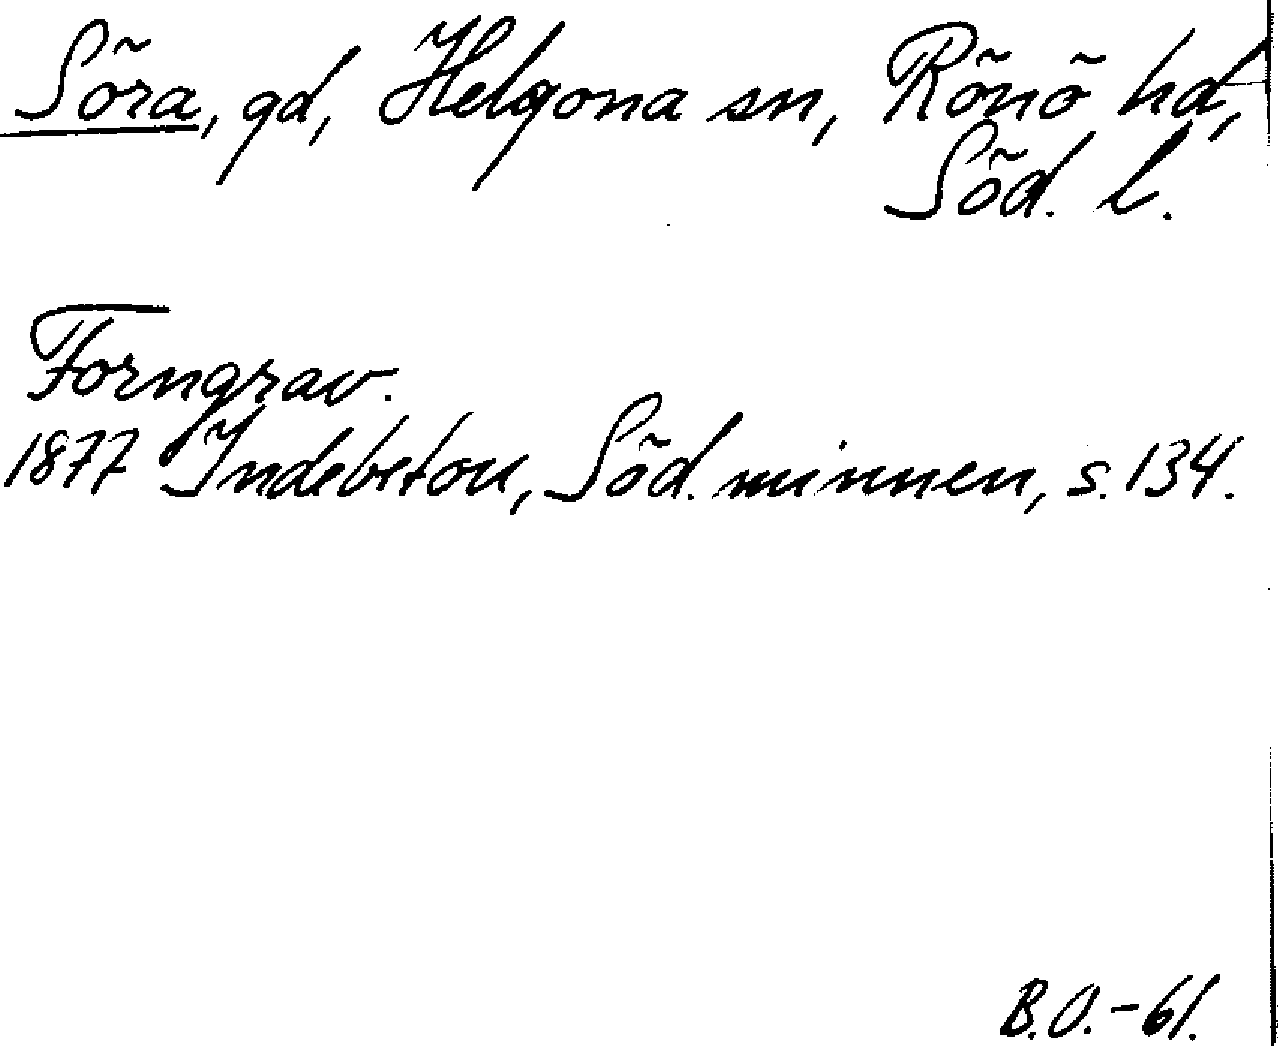 Söra, gd, Helgona sn, Rönö hd,
Söd. l.
Forngrav.
1877 Indebetou, Söd. minnen, s. 134.
B.O.-61.